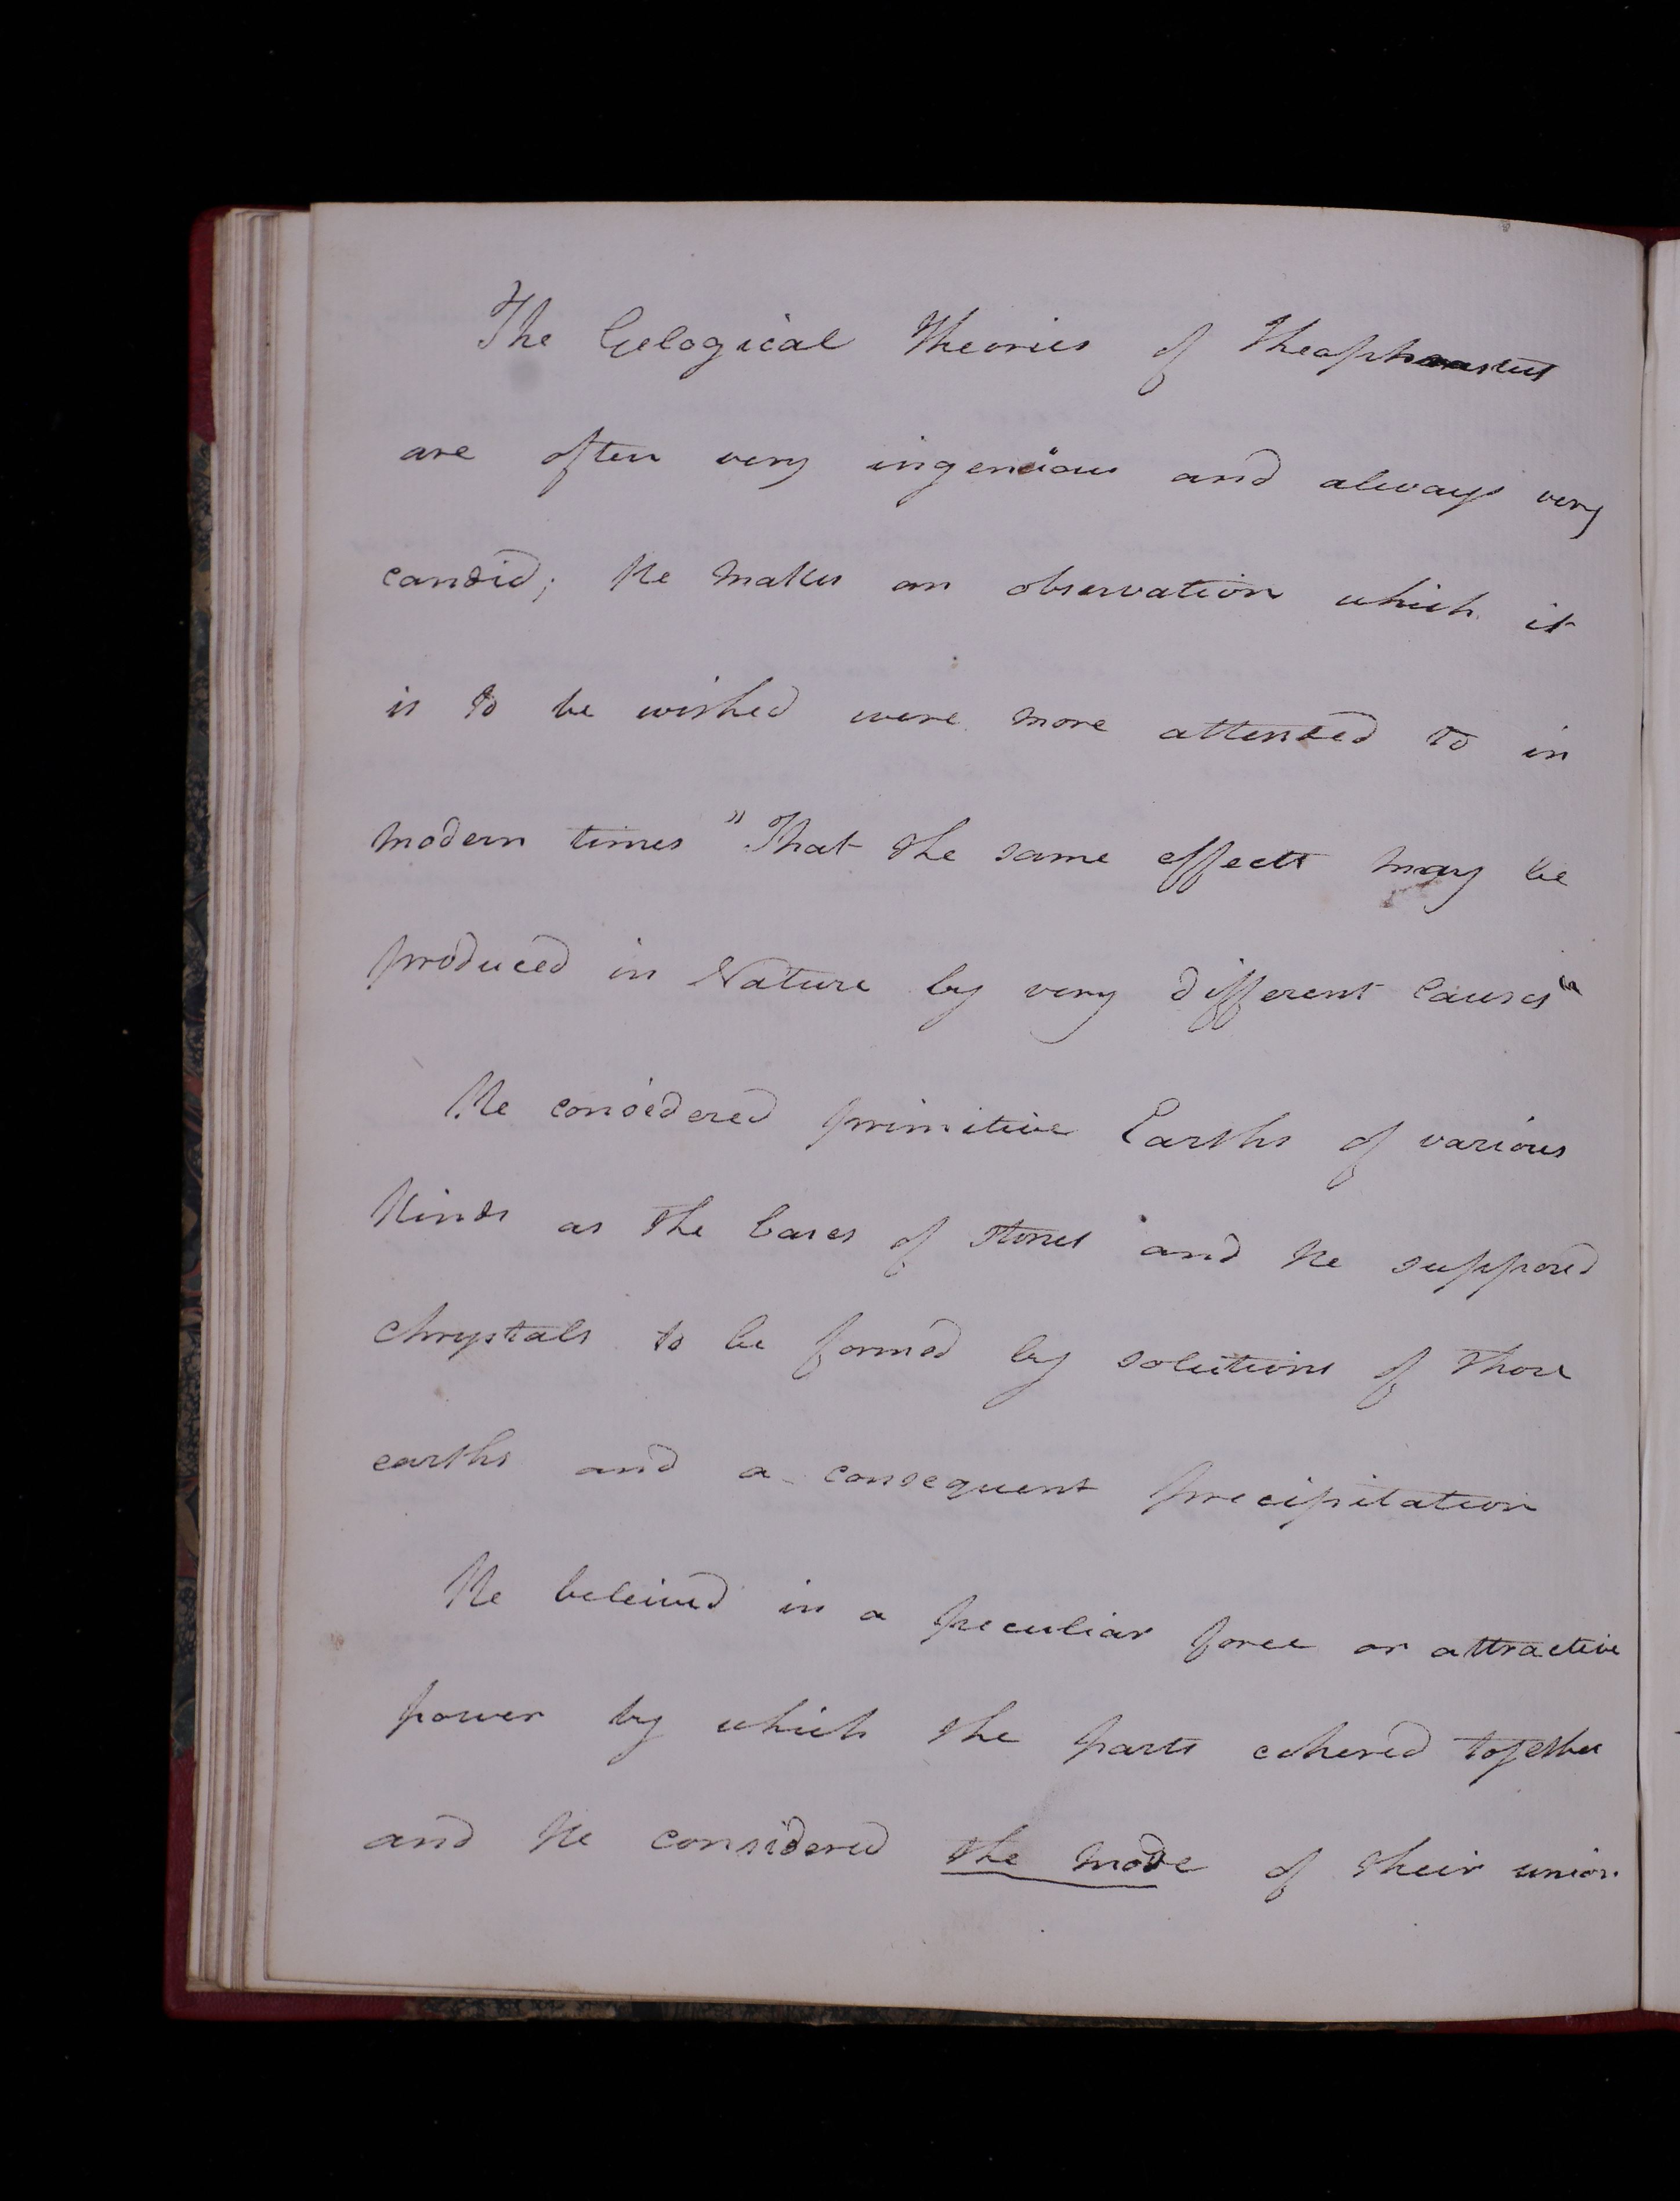 The Gelogical Theories of Theophrastus
are often very ingenious and always very
candid; He makes an observation which it
is to be wished were more attended to in
modern times "That the same effects may be
produced in Nature by very different causes"
He considered primitive Earths of various
Kinds as the bases of stones and he supposed
chrystals to be formed by solutions of those
earths and a consequent precipitation
He beleived in a peculiar force or attractive
power by which the parts cohered together
and he considered the mode of their union